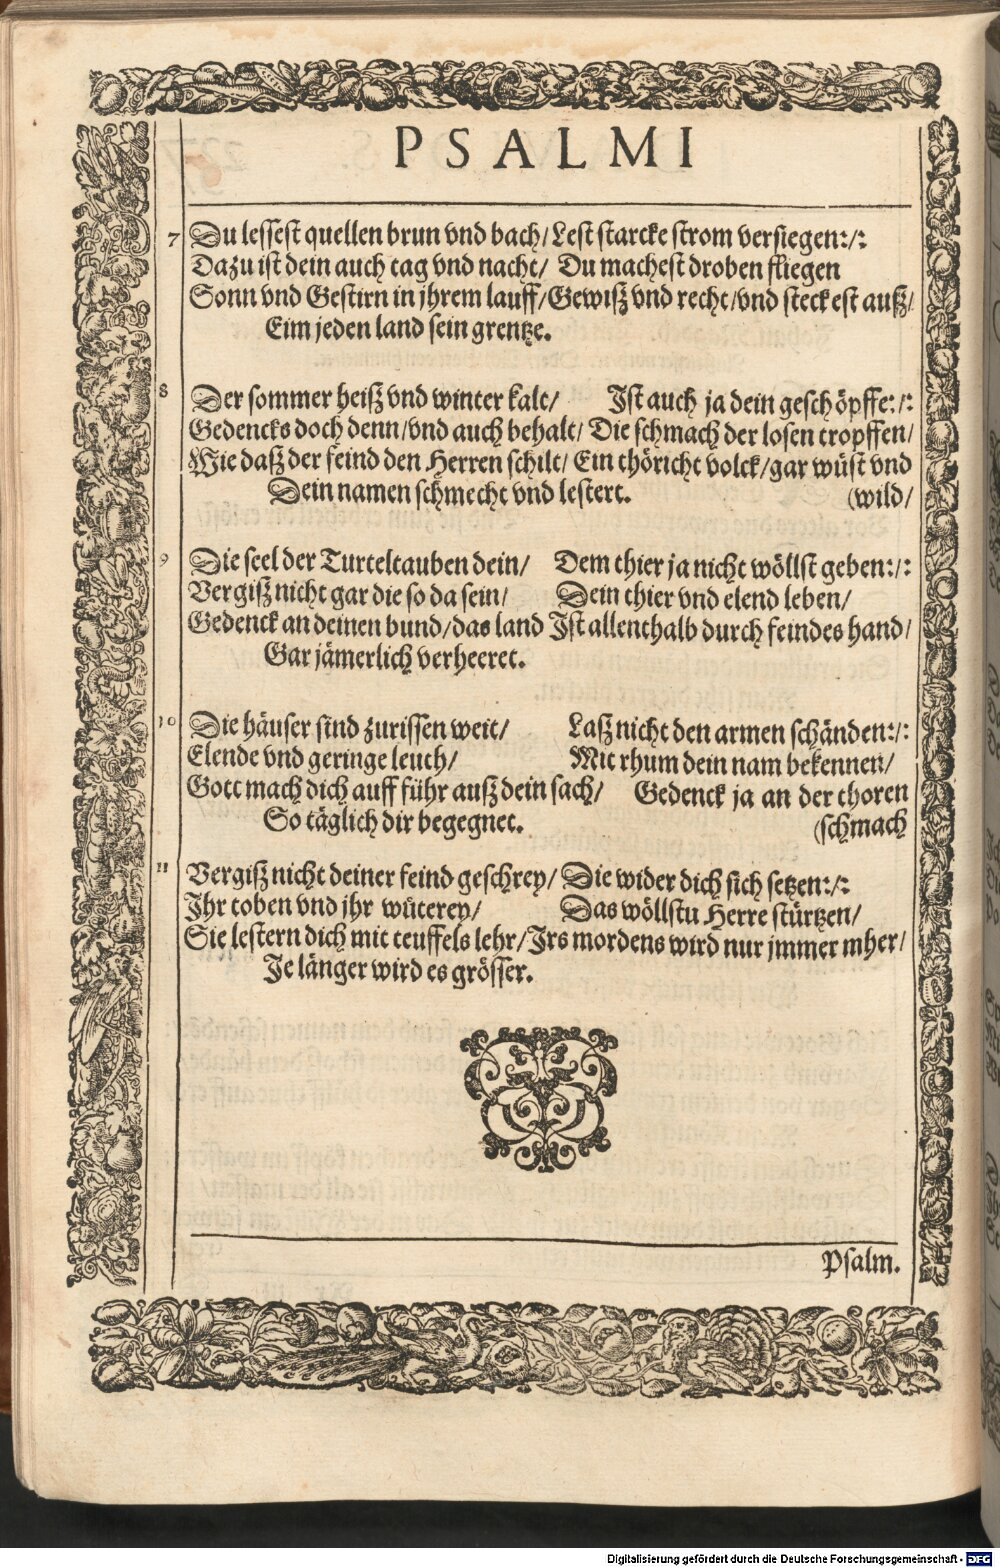 PSALMI
7 Du lessest quellen brun vnd bach/ Lest starcke strom versiegen:/:
Dazu ist dein auch tag vnd nacht/ Du machest droben fliegen
Sonn vnd Gestirn in jhrem lauff/ Gewiß vnd recht/ vnd steckest auß/
Eim jeden land sein grentze.
8 Der sommer heiß vnd winter kalt/ Ist auch ja dein geschöpffe:/:
Gedencks doch denn/ vnd auch behalt/ Die schmach der losen tropffen/
Wie daß der feind den Herren schilt/ Ein thöricht volck/ gar wüst vnd
Dein namen schmecht vnd lestert. (wild/
9 Die seel der Turteltauben dein/ Dem thier ja nicht wöllst geben:/:
Vergiß nicht gar die so da sein/ Dein thier vnd elend leben/
Gedenck an deinen bund/ das land Ist allenthalb durch feindes hand/
Gar jämerlich verheeret.
10 Die häuser sind zurissen weit/ Laß nicht den armen schänden:/:
Elende vnd geringe leuth/ Mit rhum dein nam bekennen/
Gott mach dich auff führ auß dein sach/ Gedenck ja an der thoren
So täglich dir begegnet. (schmach
11 Vergiß nicht deiner feind geschrey/ Die wider dich sich setzen:/:
Ihr toben vnd jhr wüterey/ Das wöllstu Herre stürtzen/
Sie lestern dich mit teuffels lehr/ Irs mordens wird nur jmmer mher/
Je länger wird es grösser.
Psalm.
Digitalisierung gefördert durch die Deutsche Forschungsgemeinschaft - DFG